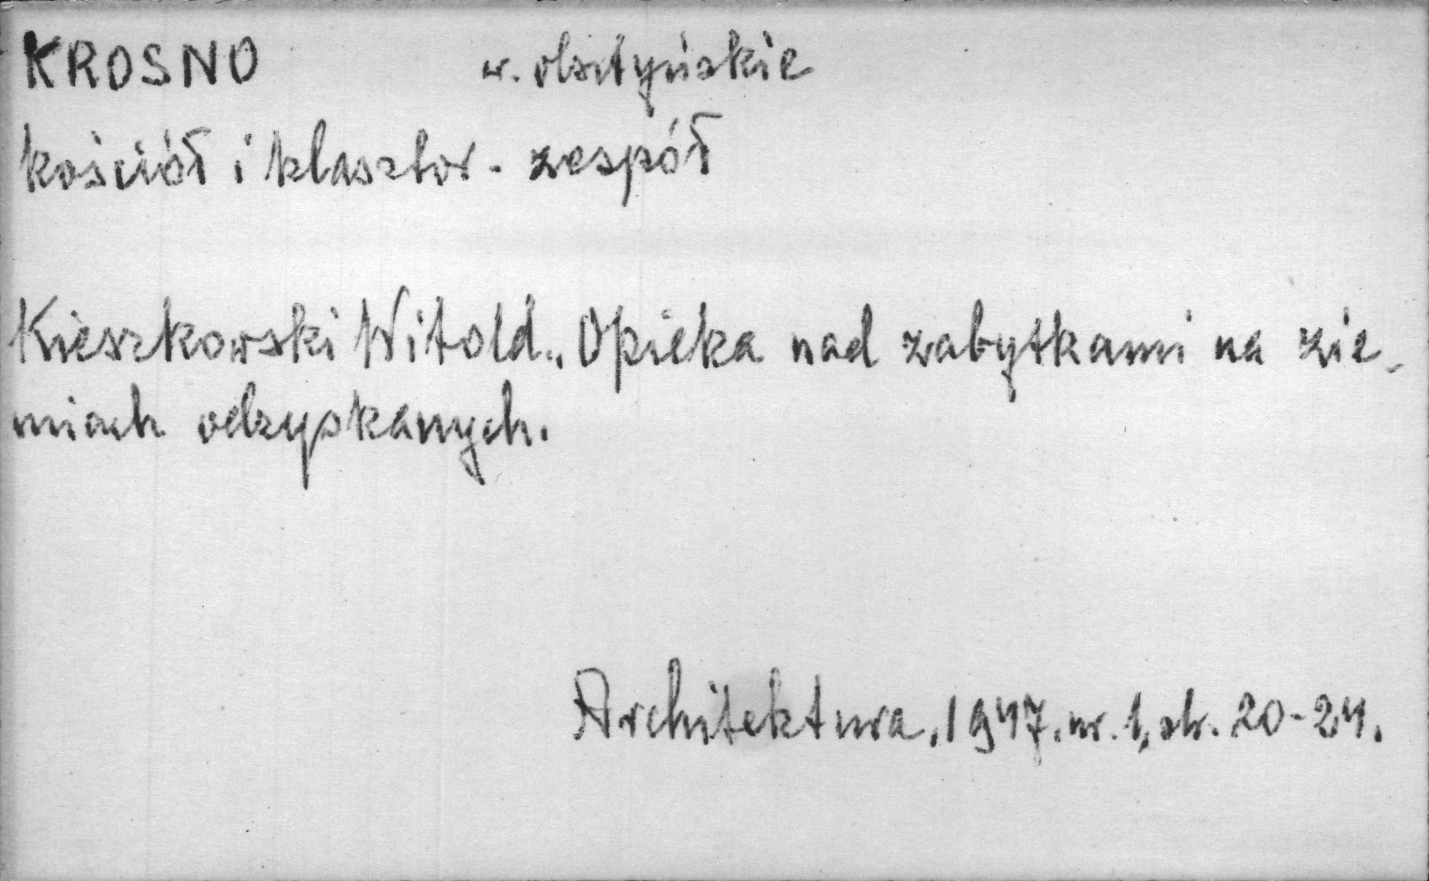 KROSNO w. olsztyńskie
kościół i klasztor - zespół
Kieszkowski Witold., Opieka nad zabytkami na zie-
miach odzyskanych.
Architektura, 1947, nr. 1, str. 20-24.